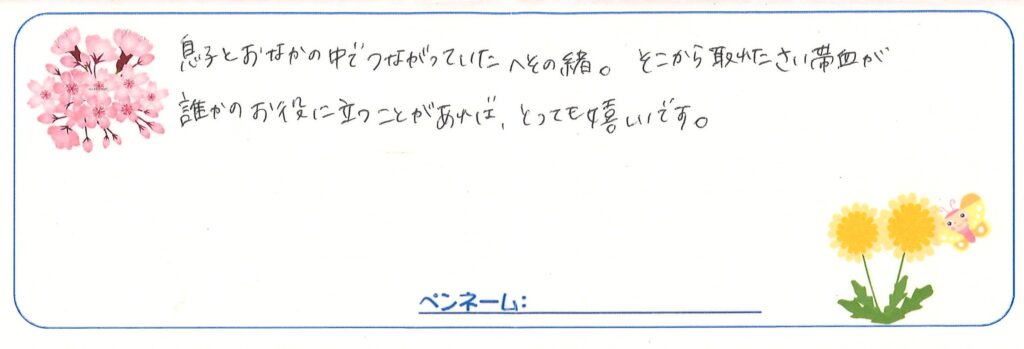 息子とおなかの中でつながっていたへその緒。 そこから取れたさい帯血が
誰かのお役に立つことがあれば、とっても嬉しいです。
ペンネーム: